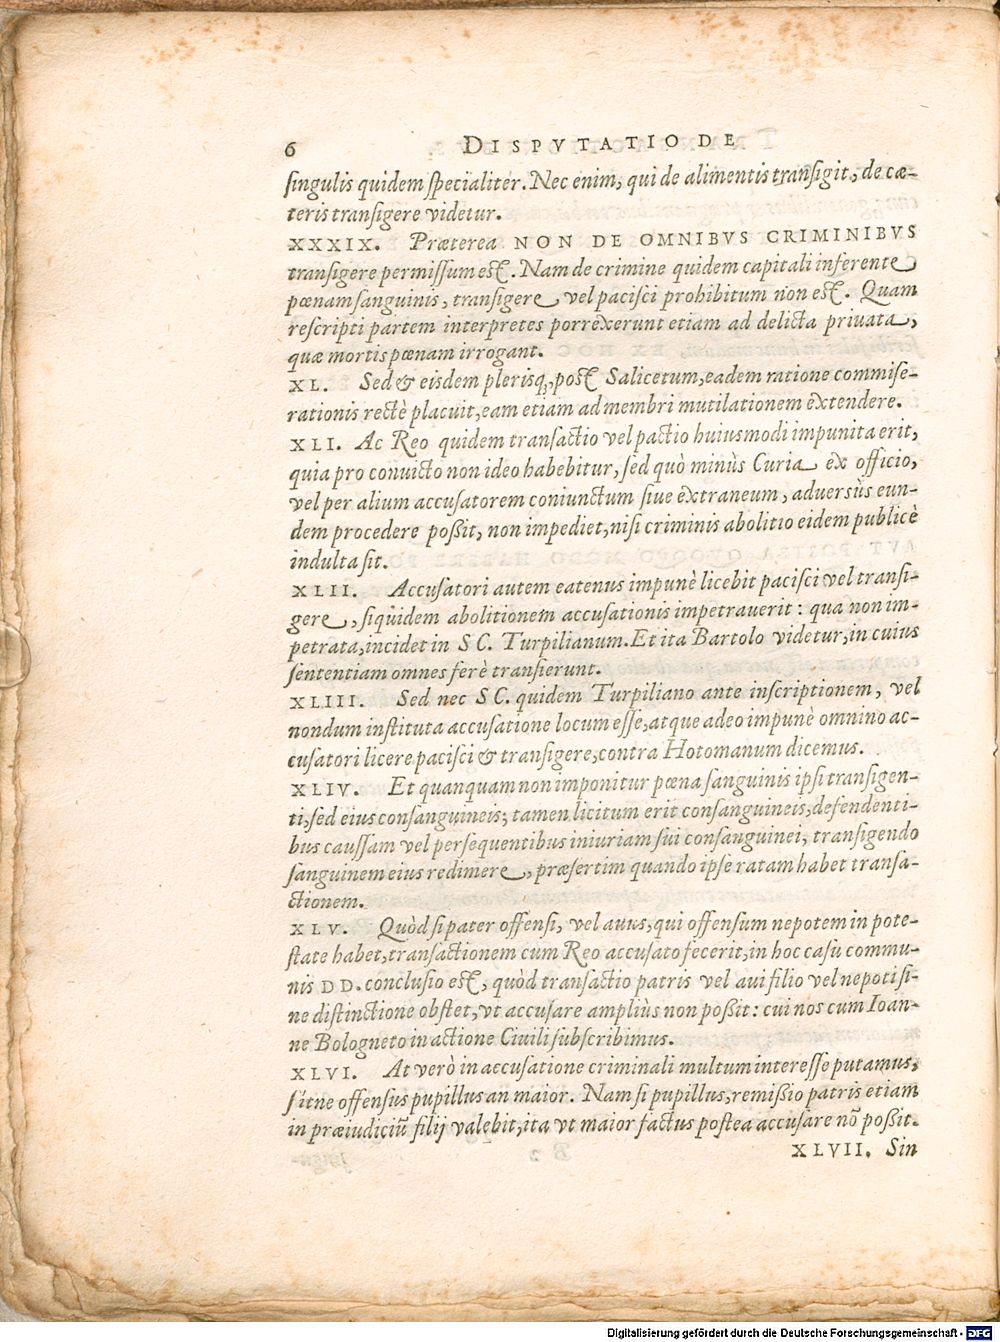 6 DISPVTATIO DE
singulis quidem specialiter. Nec enim, qui de alimentis transigit, de cæ-
teris transigere videtur.
XXXIX. Præterea NON DE OMNIBVS CRIMINIBVS
transigere permissum est. Nam de crimine quidem capitali inferente
pœnam sanguinis, transigere vel pacisci prohibitum non est. Quam
rescripti partem interpretes porrexerunt etiam ad delicta priuata,
quæ mortis pœnam irrogant.
XL. Sed & eisdem plerisq́, post Salicetum, eadem ratione commise-
rationis rectè placuit, eam etiam ad membri mutilationem extendere.
XLI. Ac Reo quidem transactio vel pactio huiusmodi impunita erit,
quia pro conuicto non ideo habebitur, sed quò minùs Curia ex officio,
vel per alium accusatorem coniunctum siue extraneum, aduersùs eun-
dem procedere poßit, non impediet, nisi criminis abolitio eidem publicè
indulta sit.
XLII. Accusatori autem eatenus impunè licebit pacisci vel transi-
gere, siquidem abolitionem accusationis impetrauerit: qua non im-
petrata, incidet in SC. Turpilianum. Et ita Bartolo videtur, in cuius
sententiam omnes ferè transierunt.
XLIII. Sed nec SC. quidem Turpiliano ante inscriptionem, vel
nondum instituta accusatione locum esse, atque adeo impunè omnino ac-
cusatori licere pacisci & transigere, contra Hotomanum dicemus.
XLIV. Et quanquam non imponitur pœna sanguinis ipsi transigen-
ti, sed eius consanguineis; tamen licitum erit consanguineis, defendenti-
bus caussam vel persequentibus iniuriam sui consanguinei, transigendo
sanguinem eius redimere, præsertim quando ipse ratam habet transa-
ctionem.
XLV. Quòd si pater offensi, vel auus, qui offensum nepotem in pote-
state habet, transactionem cum Reo accusato fecerit, in hoc casu commu-
nis DD. conclusio est, quòd transactio patris vel aui filio vel nepoti si-
ne distinctione obstet, vt accusare ampliùs non poßit: cui nos cum Ioan-
ne Bologneto in actione Ciuili subscribimus.
XLVI. At verò in accusatione criminali multum interesse putamus,
sitne offensus pupillus an maior. Nam si pupillus, remißio patris etiam
in præiudiciū filij valebit, ita vt maior factus postea accusare nō poßit.
XLVII. Sin
Digitalisierung gefördert durch die Deutsche Forschungsgemeinschaft - DFG